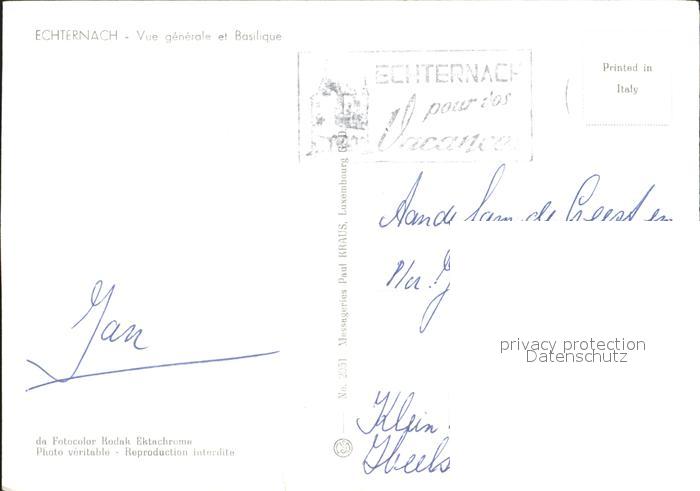 ECHTERNACH - Vue générale et Basilique
ECHTERNACH
pour vos
Vacances
Printed in
Italy
Aan de fam. de
en
privacy protection
Datenschutz
Jan
Klein
No. 2351 Messageries Paul KRAUS, Luxembourg
da Fotocolor Kodak Ektachrome
Photo véritable - Reproduction interdite